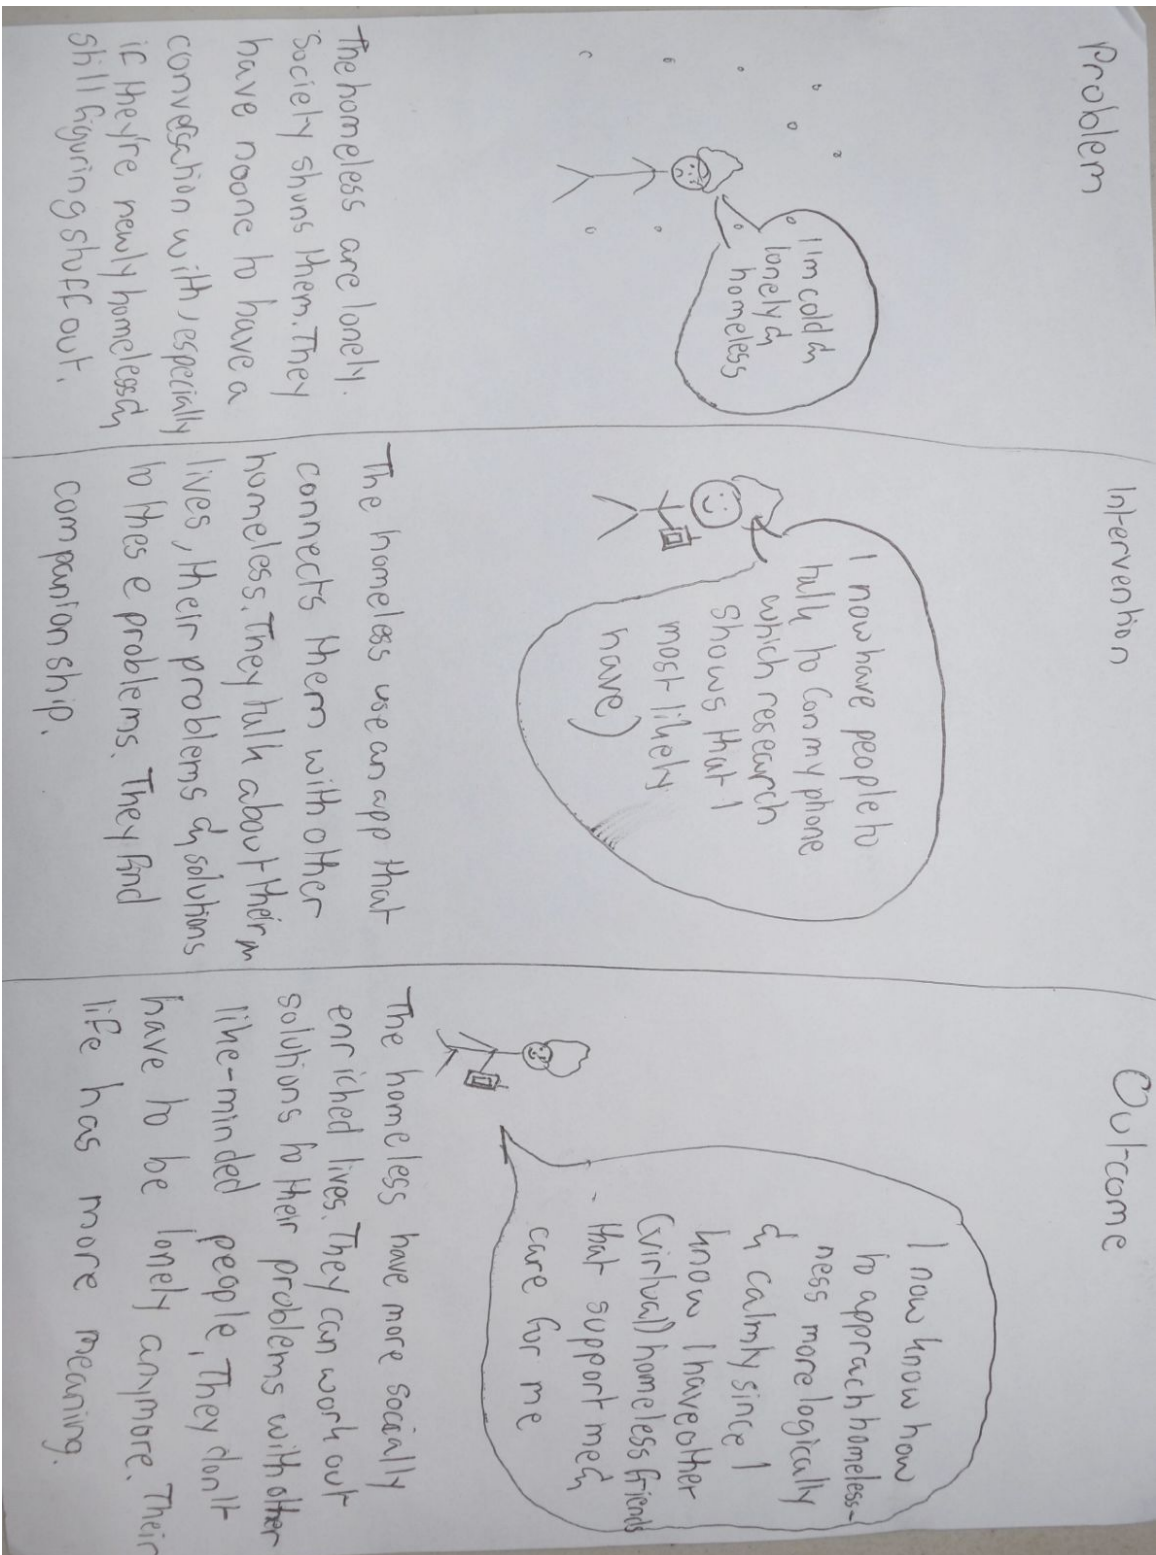 Problem
I'm cold &
lonely &
homeless
The homeless are lonely.
Society shuns them. They
have noone to have a
conversation with, especially
if they're newly homeless &
still figuring stuff out.
Intervention
I now have people to
talk to (on my phone
which research
shows that I
most likely
have)
The homeless use an app that
connects them with other
homeless. They talk about their
lives, their problems & solutions
to thes e problems. They find
companionship.
Outcome
I now know how
to apprach homeless-
ness more logically
& calmly since I
know I have other
(virtual) homeless friends
that support me &
care for me
The homeless have more socially
enriched lives. They can work out
solutions to their problems with other
like-minded people. They don't
have to be lonely anymore. Their
life has more meaning.